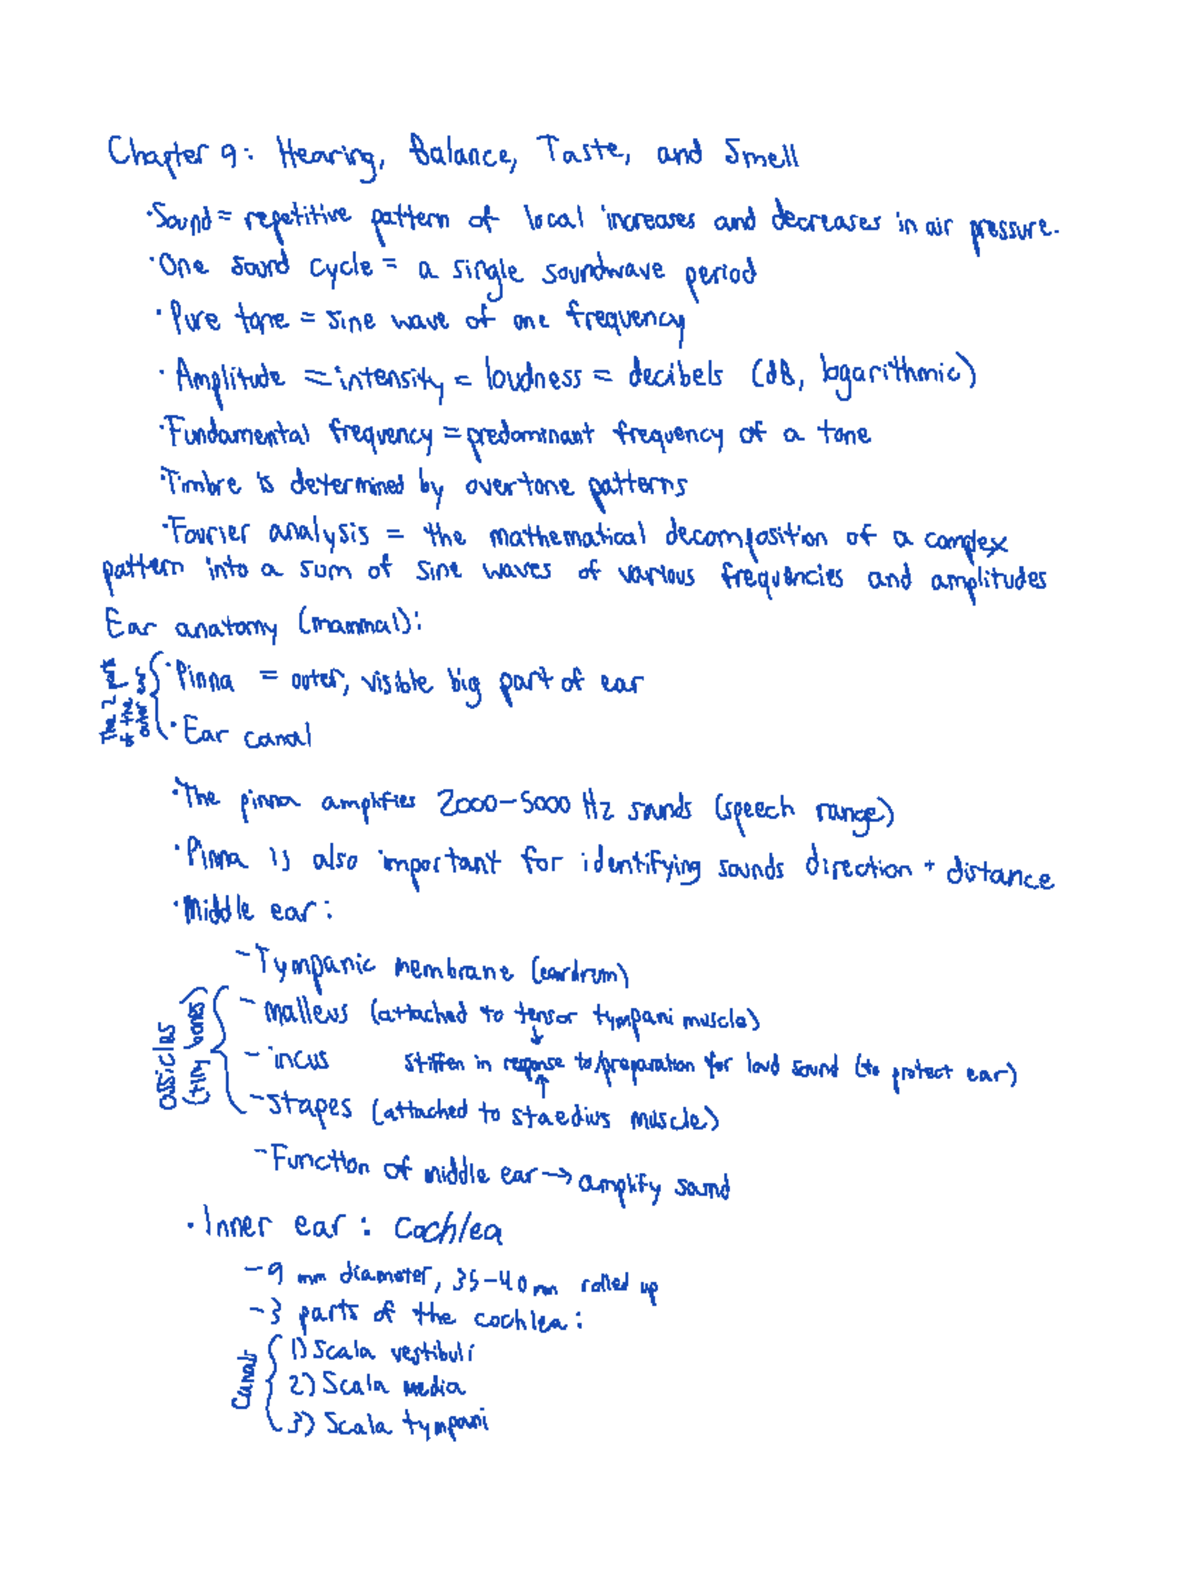 Chapter 9: Hearing, Balance, Taste, and Smell
·Sound = repetitive pattern of local increases and decreases in air pressure.
·One sound cycle = a single soundwave period
·Pure tone = sine wave of one frequency
·Amplitude = intensity = loudness = decibels (dB, logarithmic)
·Fundamental frequency = predominant frequency of a tone
·Timbre is determined by overtone patterns
·Fourier analysis = the mathematical decomposition of a complex
pattern into a sum of sine waves of various frequencies and amplitudes
Ear anatomy (mammal):
The 2 parts
of the
outer ear
·Pinna = outer, visible big part of ear
·Ear canal
·The pinna amplifies 2000-5000 Hz sounds (speech range)
·Pinna is also important for identifying sounds direction + distance
·Middle ear:
-Tympanic membrane (eardrum)
ossicles
(tiny bones)
- malleus (attached to tensor tympani muscle)
- incus stiffen in response to/preparation for loud sound (to protect ear)
-stapes (attached to staedius muscle)
-Function of middle ear → amplify sound
·Inner ear: cochlea
-9 mm diameter, 35-40 mm rolled up
-3 parts of the cochlea:
Canals
1) Scala vestibuli
2) Scala media
3) Scala tympani